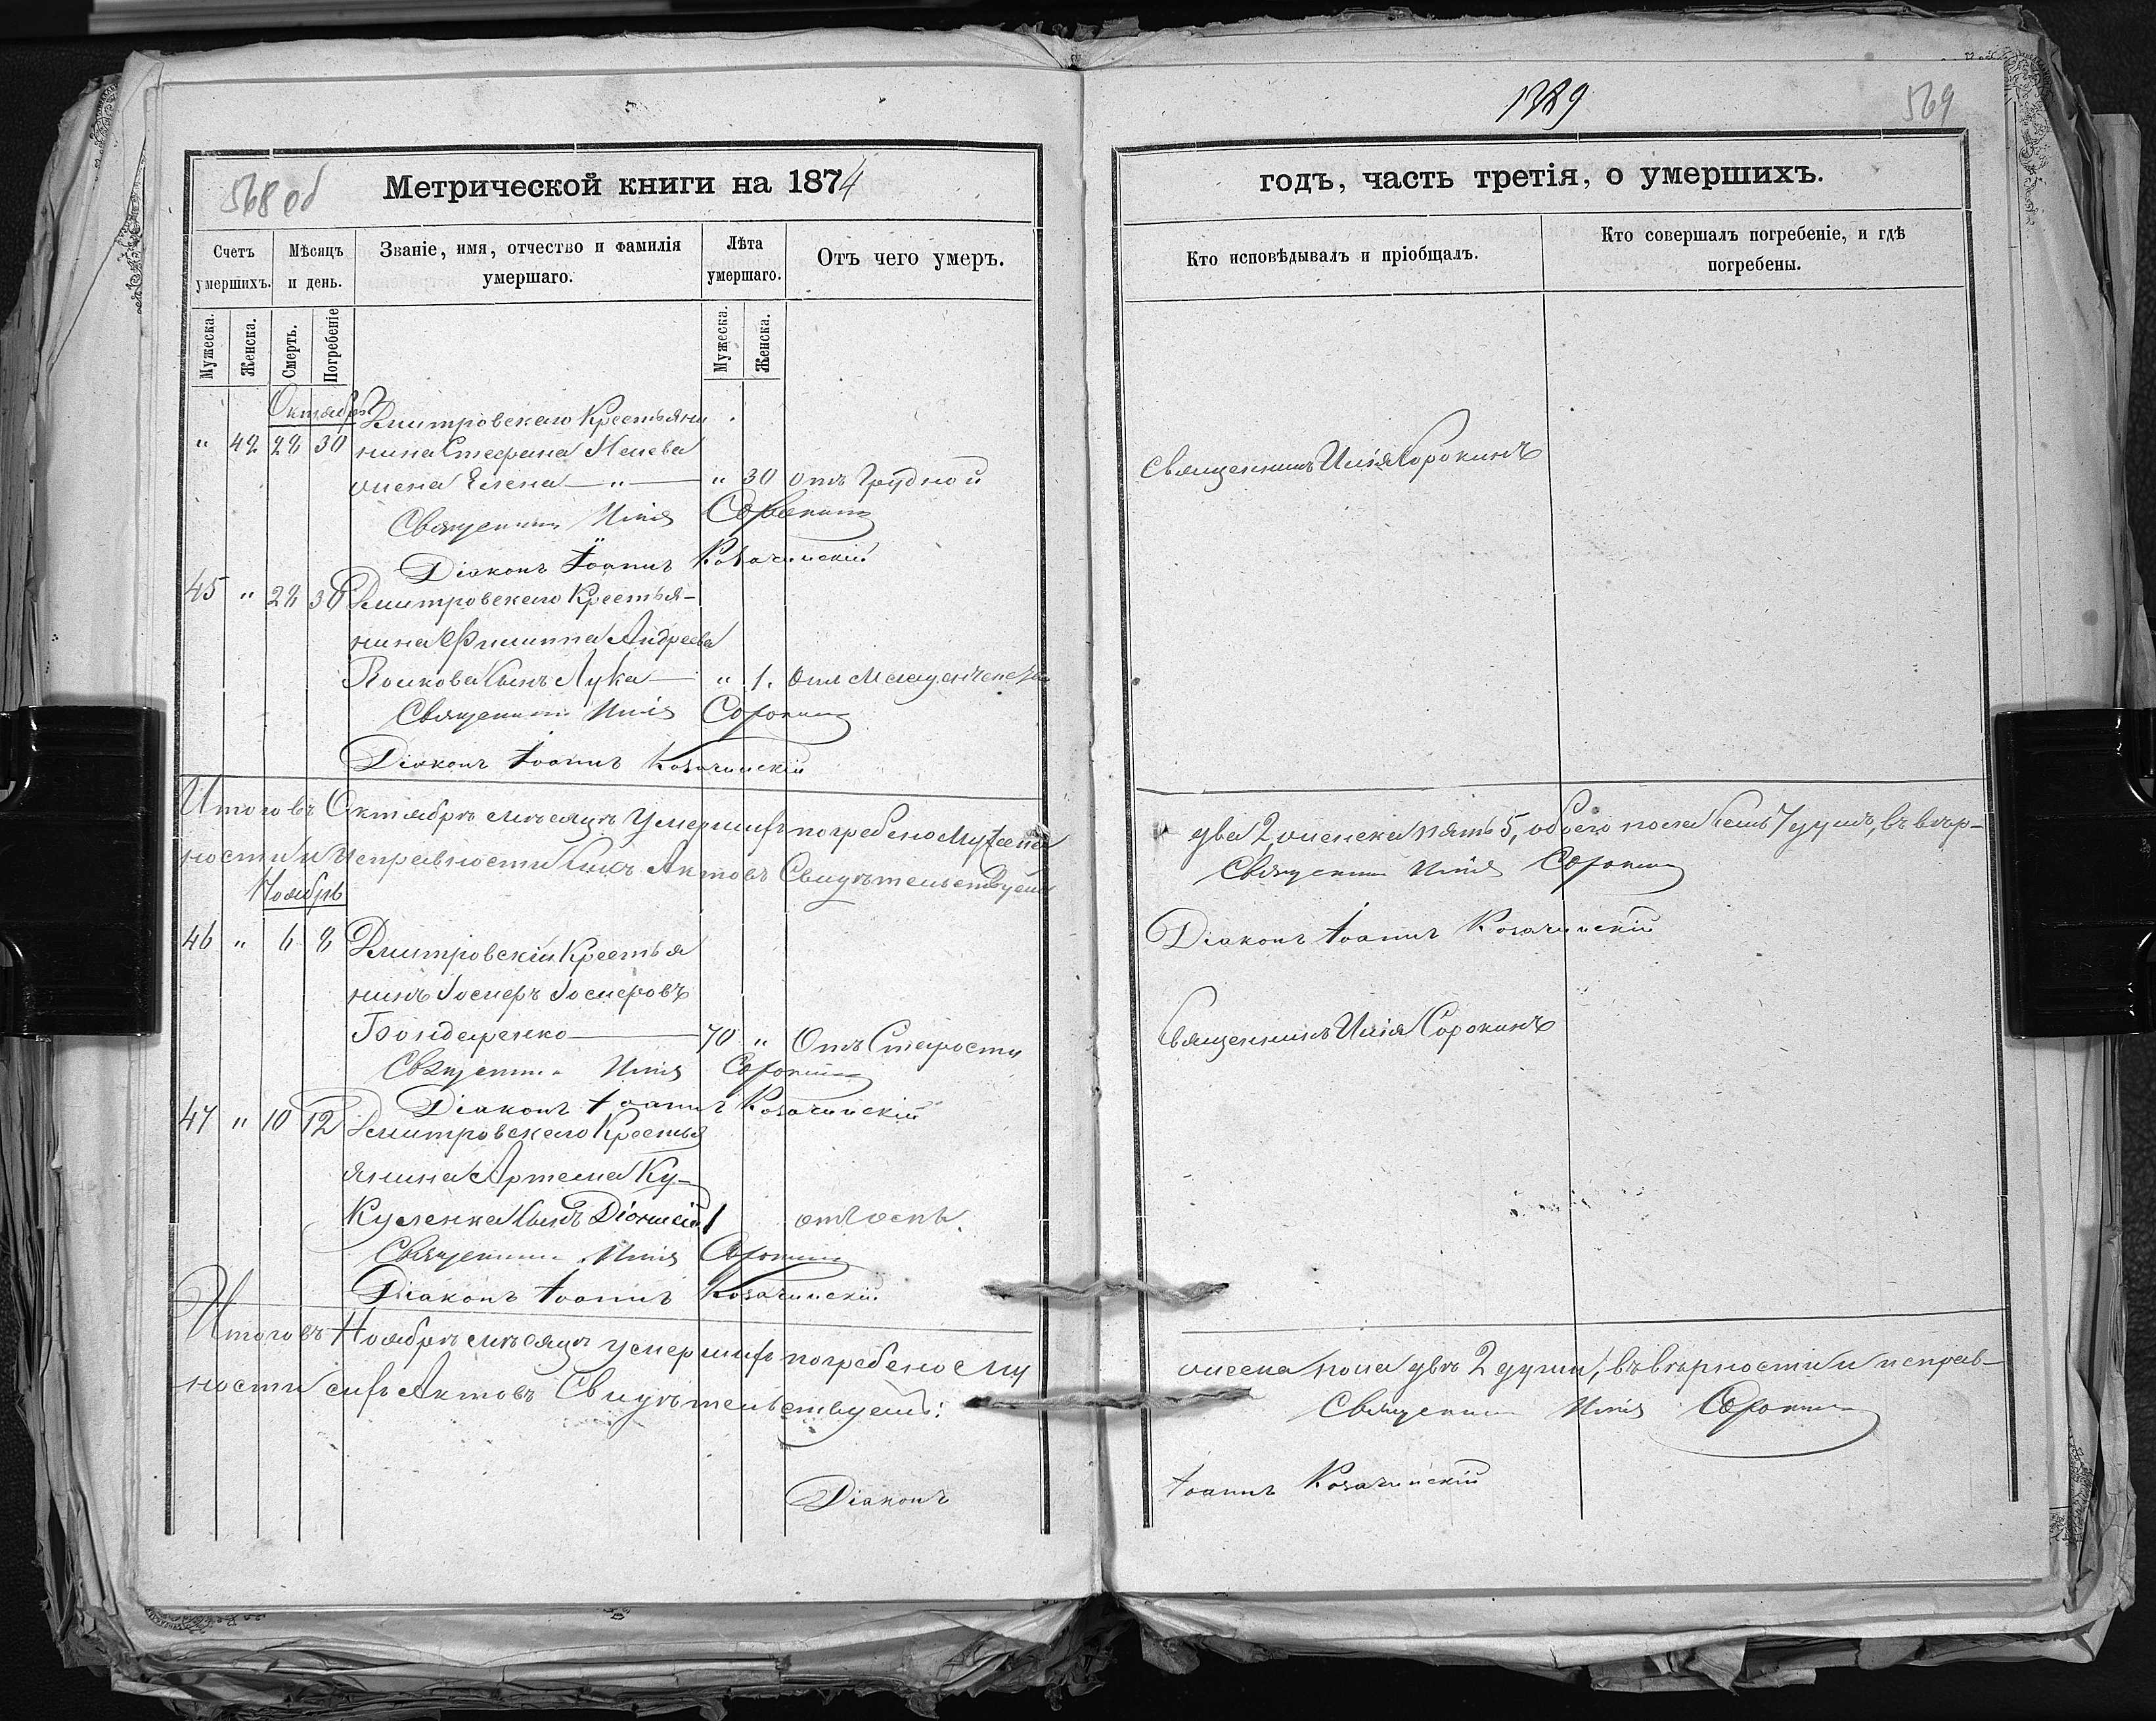 568 об
Метрической книги на 1874
Счетъ умершихъ.
Мѣсяцъ и день.
Званіе, имя, отчество и фамилія умершаго.
Лѣта умершаго.
Отъ чего умеръ.
Мужеска.
Женска.
Смерть.
Погребеніе
Мужеска.
Женска.
Октябрь
Дмитровскаго Крестьяни
" 42 28 30 нина Стефана
жена Елена — " — " 30 отъ Грудной
Священникъ Илія Сорокинъ
Діаконъ Іоаннъ Козачинскій
45 " 28 30 Дмитровскаго Крестья-
нина Филиппа Андреева
сынъ Лука — " 1. отъ Младенческой
Священникъ Илія Сорокинъ
Діаконъ Іоаннъ Козачинскій
Итого въ Октябрѣ мѣсяцѣ Умершихъ погребено Мужеска
ности и Исправности сихъ Актовъ Свидѣтельствуемъ
Ноябрь
46 " 6 8 Дмитровскій Крестья
нинъ
Бондаренко — 70 " Отъ Старости
Священникъ Илія Сорокинъ
Діаконъ Іоаннъ Козачинскій
47 " 10 12 Дмитровскаго Крестья
янина Артема Ку-
куленка сынъ Діонисій 1 отъ оспы.
Священникъ Илія Сорокинъ
Діаконъ Іоаннъ Козачинскій
Итого въ Ноябрѣ мѣсяцѣ умершихъ погребено му
ности сихъ Актовъ Свидѣтельствуемъ:
Діаконъ
569
годъ, часть третія, о умершихъ.
Кто исповѣдывалъ и пріобщалъ.
Кто совершалъ погребеніе, и гдѣ погребены.
Священникъ Илія Сорокинъ
два 2, женска пять 5, обоего пола семь 7 душъ, въ вѣр-
Священникъ Илія Сорокинъ
Діаконъ Іоаннъ Козачинскій
Священникъ Илія Сорокинъ
жеска пола двѣ 2 души, въ вѣрности и исправ-
Священникъ Илія Сорокинъ
Іоаннъ Козачинскій